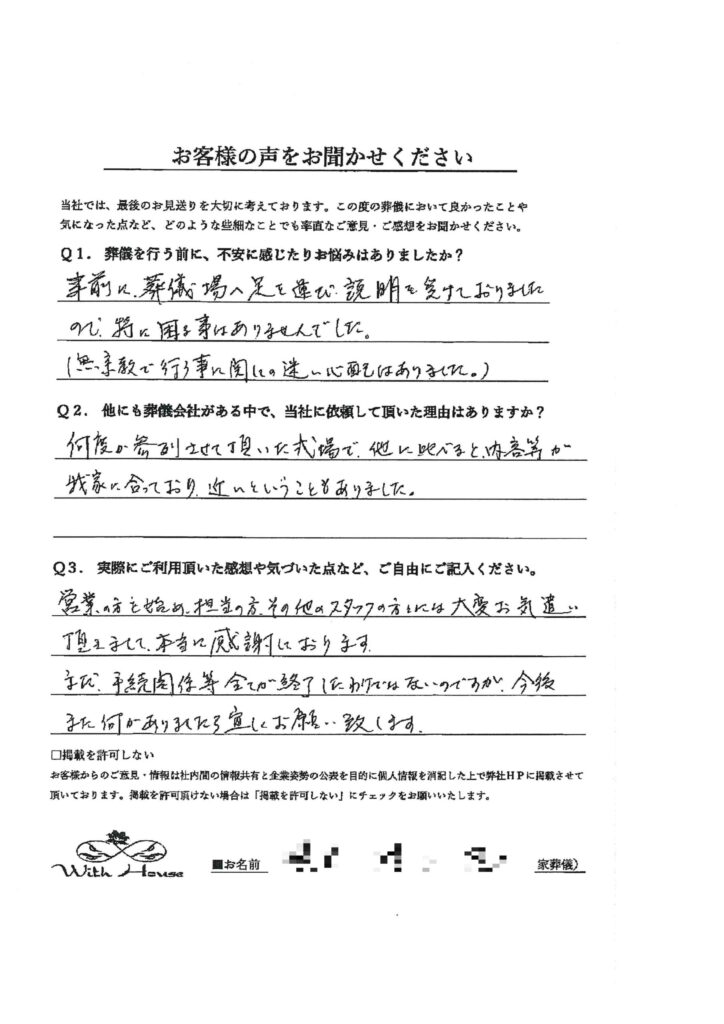 お客様の声をお聞かせください
当社では、最後のお見送りを大切に考えております。この度の葬儀において良かったことや
気になった点など、どのような些細なことでも率直なご意見・ご感想をお聞かせください。
Q1. 葬儀を行う前に、不安に感じたりお悩みはありましたか？
事前に、葬儀場へ足を運び、説明を受けておりました
ので、特に困る事はありませんでした。
(無宗教で行う事に関しての迷い心配はありました。)
Q2. 他にも葬儀会社がある中で、当社に依頼して頂いた理由はありますか？
何度か参列させて頂いた式場で、他に比べると、内容等が
我家に合っており、近いということもありました。
Q3. 実際にご利用頂いた感想や気づいた点など、ご自由にご記入ください。
営業の方を始め、担当の方、その他のスタッフの方々には大変お気遣い
頂きまして、本当に感謝しております。
まだ、手続関係等全てが終了したわけではないのですが、今後
また何かありましたら宜しくお願い致します。
□掲載を許可しない
お客様からのご意見・情報は社内間の情報共有と企業姿勢の公表を目的に個人情報を消記した上で弊社HPに掲載させて
頂いております。掲載を許可頂けない場合は「掲載を許可しない」にチェックをお願いいたします。
With House
■お名前 家葬儀)